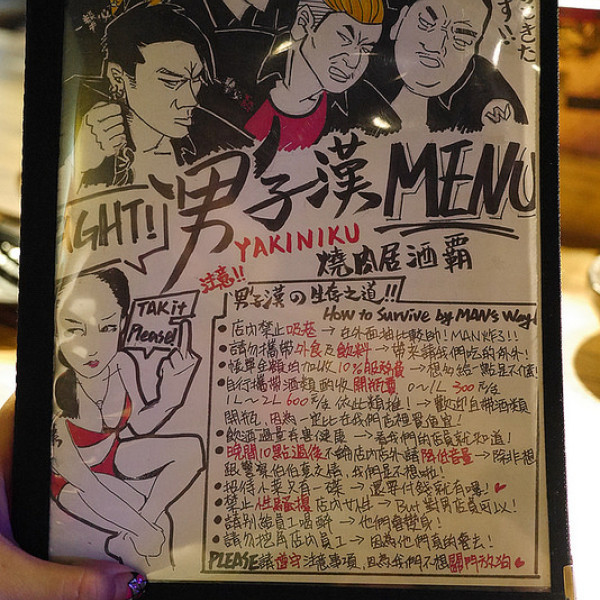 すきた
す!!
男子漢 MENU
GHT!
YAKINIKU
燒肉居酒霸
TAKit
Please!
注意!!
男子漢の生存之道!!
How to Survive by MAN's Way!
●店內禁止吸菸→在外面抽比較帥!MAN炸了!!
●請勿攜帶外食及飲料→帶來請我們吃的例外!
●帳單金額均加收10%服務費→想多給一點是不會!
●自行攜帶酒類酌收開瓶費 0~1L 300元/台
1L~2L 600元/台 依此類推!→歡迎自帶酒類
開瓶,因為一定比在我們店裡買便宜!
●飲酒過量有異健康→看我們的店員就知道!
●晚間10點過後不論店內店外請降低音量→除非想
跟警察伯伯交、我們是不想啦!
●招待小菜只有一碟→還要付錢就有囉!
●禁止性騷擾店內女性→But對男店員可以!
●請別給員工喝醉→他們會變身!
●請勿挖角店內員工→因為他們真的會去!
PLEASE請遵守注意事項,因為我們不想關門放狗